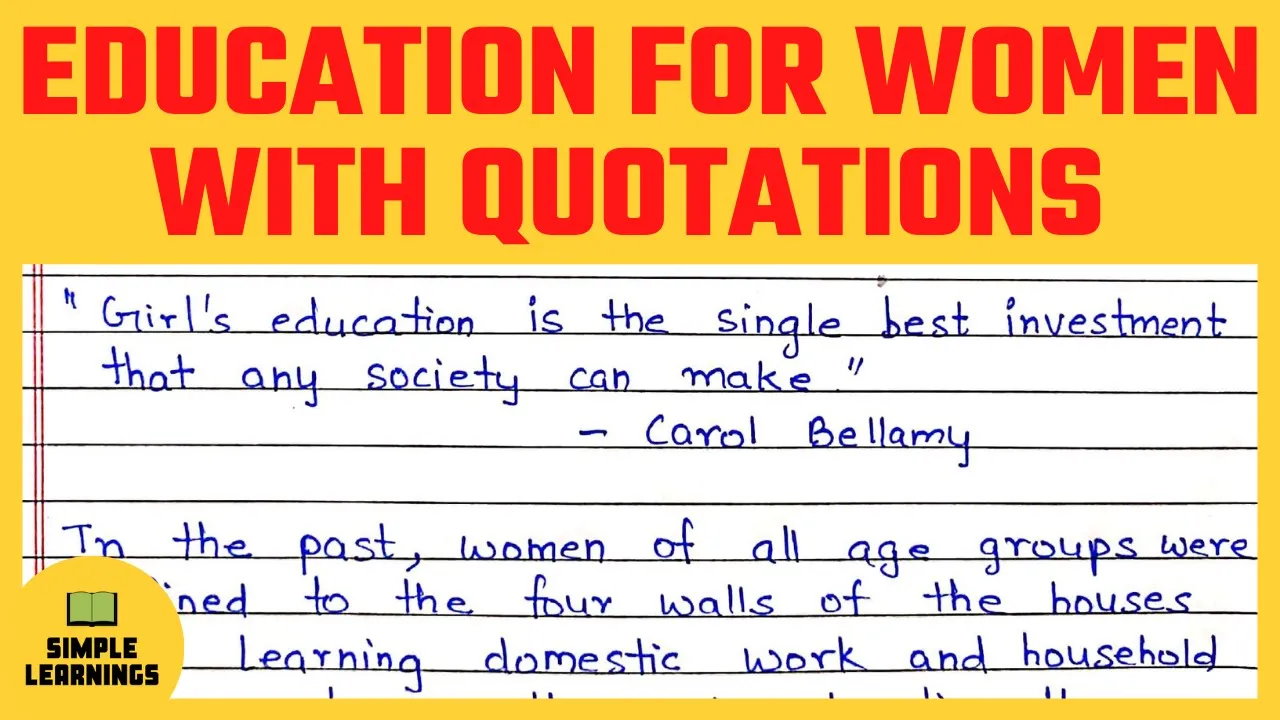 EDUCATION FOR WOMEN
WITH QUOTATIONS
" Girl's education is the single best investment
that any society can make "
- Carol Bellamy
In the past, women of all age groups were
ined to the four walls of the houses
learning domestic work and household
SIMPLE
LEARNINGS